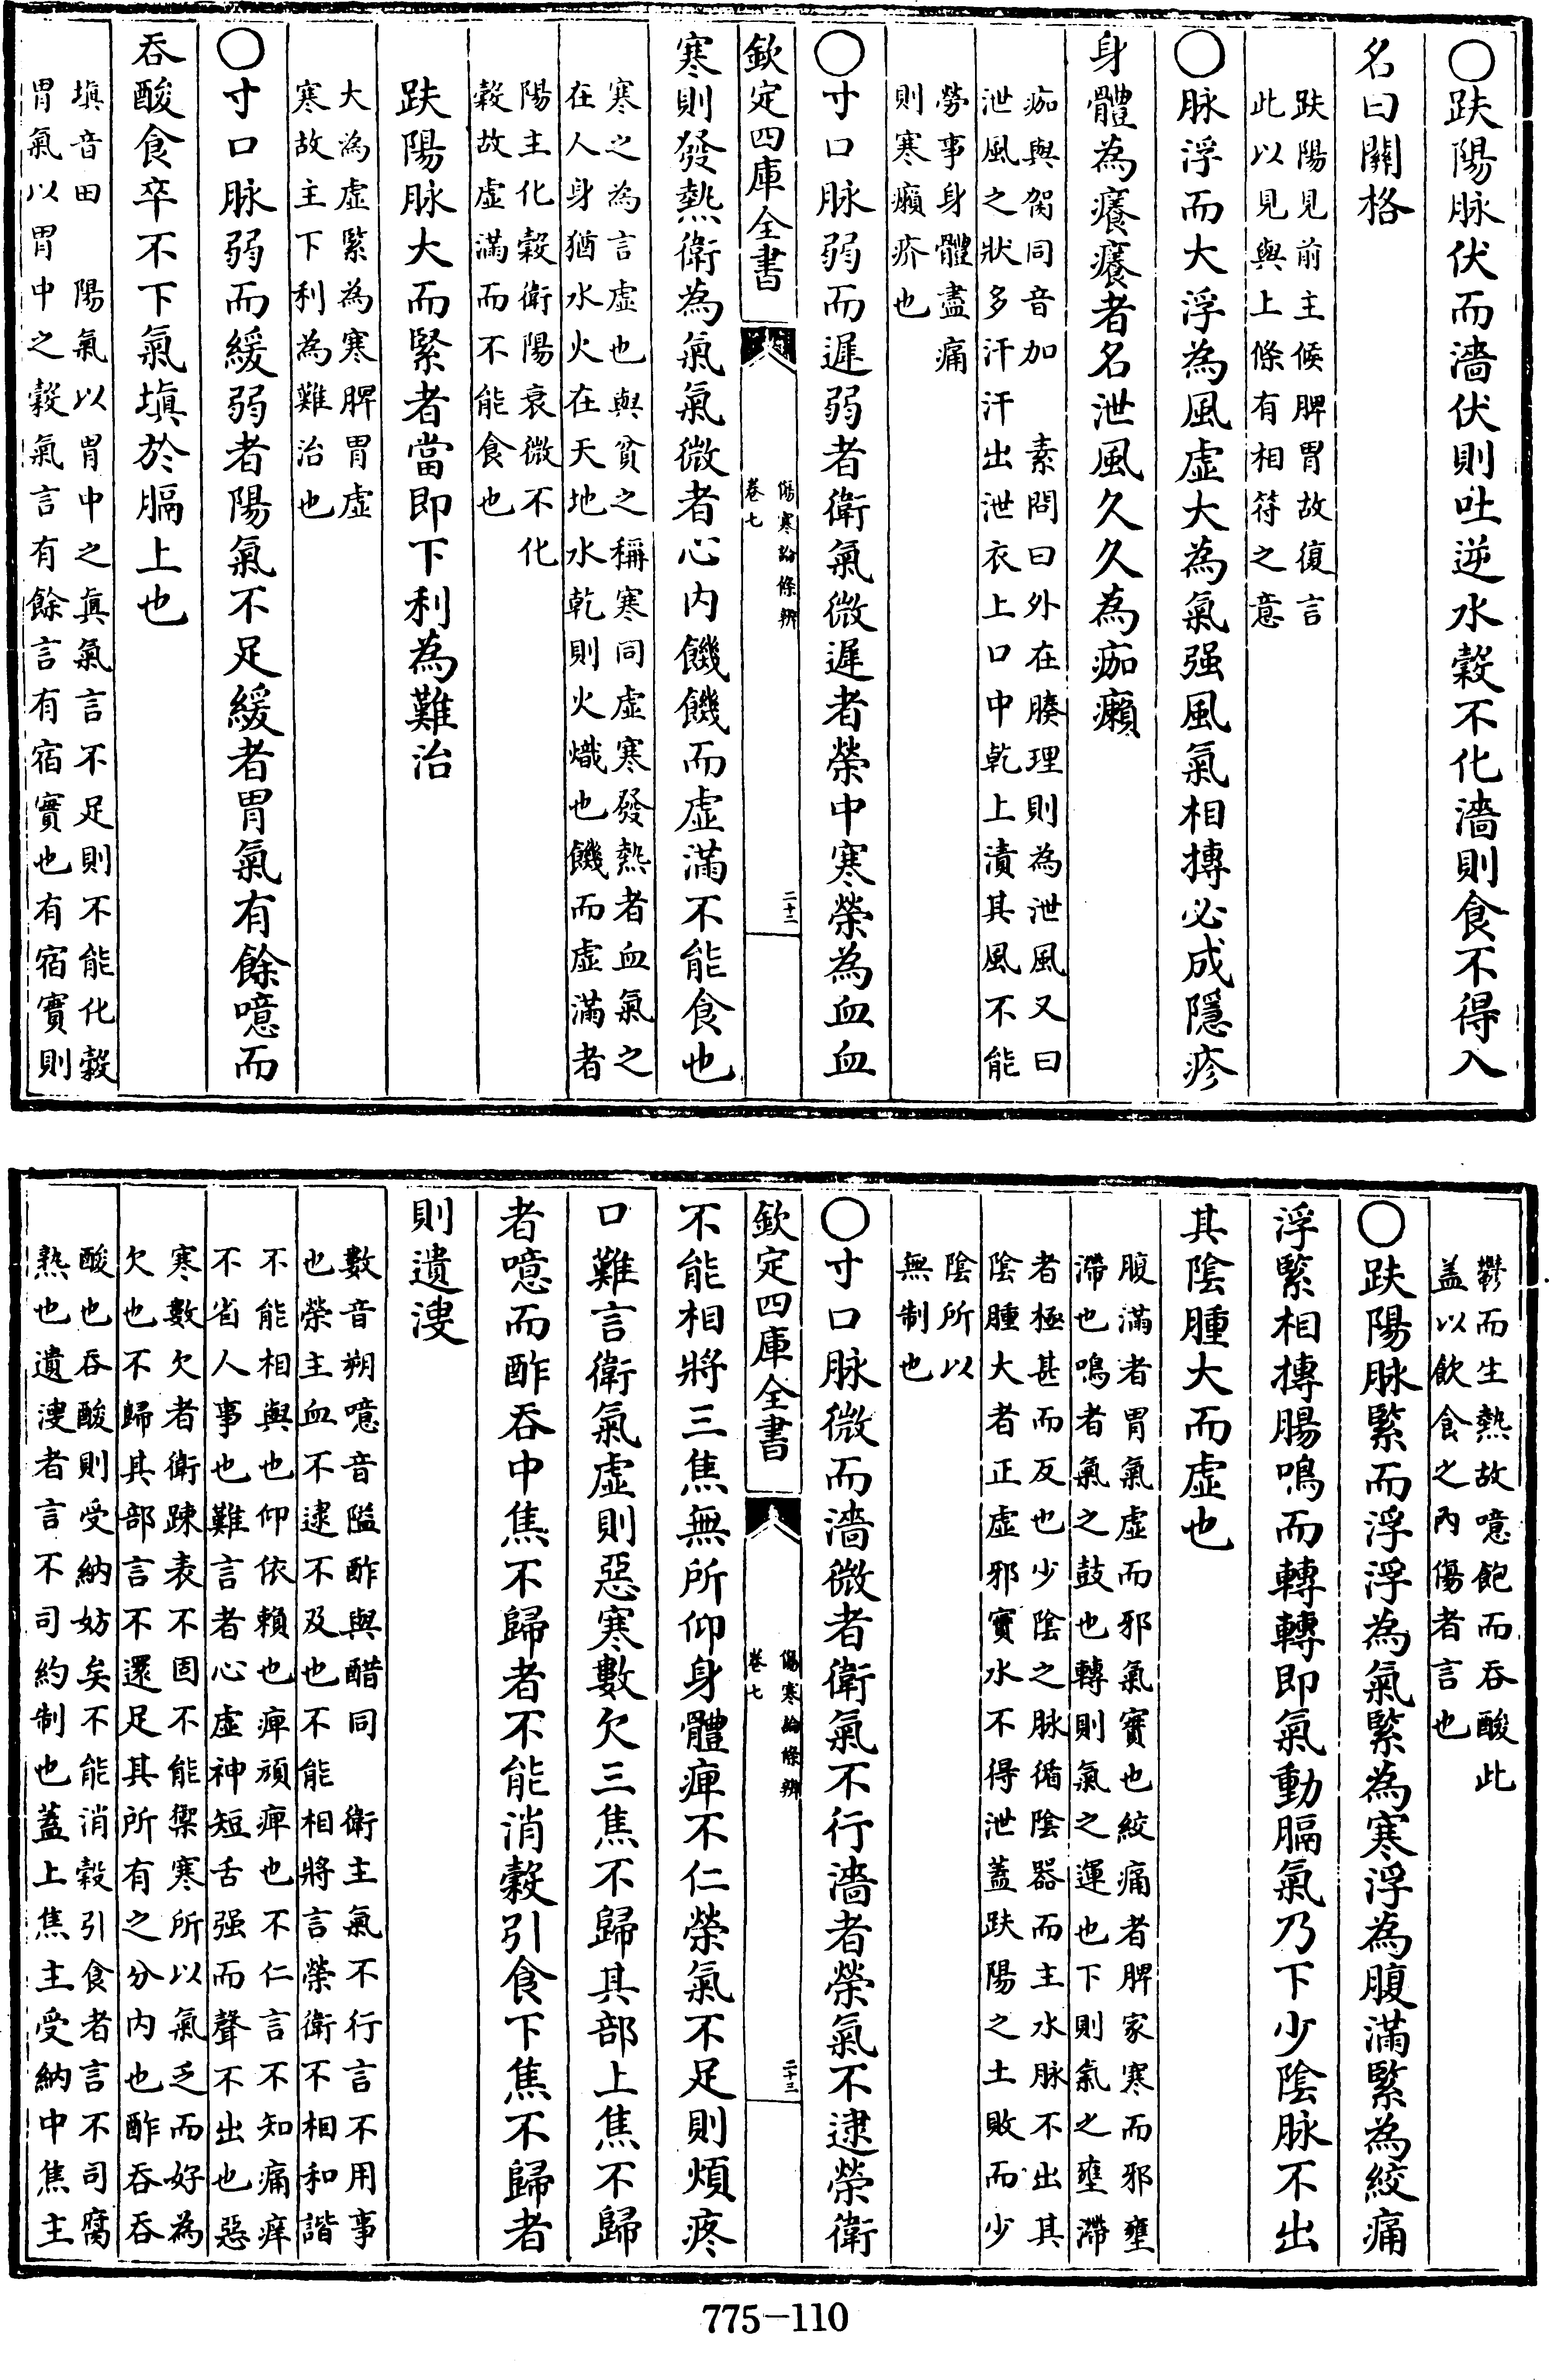 ○趺陽脉伏而濇伏則吐逆水穀不化濇則食不得入
名曰關格
趺陽見前主候脾胃故復言
此以見與上條有相符之意
○脉浮而大浮為風虚大為氣强風氣相摶必成隱疹
身體為癢癢者名泄風久久為痂癩
痂與㾏同音加　素問曰外在腠理則為泄風又曰
泄風之狀多汗汗出泄衣上口中乾上漬其風不能
勞事身體盡痛
則寒癩疥也
○寸口脉弱而遲弱者衛氣微遲者榮中寒榮為血血
欽定四庫全書
傷寒論條辨
卷七
二十二
寒則發熱衛為氣氣微者心内饑饑而虚滿不能食也
寒之為言虚也與貧之稱寒同虚寒發熱者血氣之
在人身猶水火在天地水乾則火熾也饑而虚滿者
陽主化穀衛陽衰微不化
穀故虚滿而不能食也
趺陽脉大而緊者當即下利為難治
大為虚緊為寒脾胃虚
寒故主下利為難治也
○寸口脉弱而緩弱者陽氣不足緩者胃氣有餘噫而
吞酸食卒不下氣塡於膈上也
塡音田　陽氣以胃中之眞氣言不足則不能化穀
胃氣以胃中之穀氣言有餘言有宿實也有宿實則
鬱而生熱故噫飽而吞酸此
盖以飲食之内傷者言也
○趺陽脉緊而浮浮為氣緊為寒浮為腹滿緊為絞痛
浮緊相摶腸鳴而轉轉即氣動膈氣乃下少陰脉不出
其陰腫大而虚也
腹滿者胃氣虚而邪氣實也絞痛者脾家寒而邪壅
滯也鳴者氣之鼓也轉則氣之運也下則氣之壅滯
者極甚而反也少陰之脉循陰器而主水脉不出其
陰腫大者正虚邪實水不得泄蓋趺陽之土敗而少
陰所以
無制也
○寸口脉微而濇微者衛氣不行濇者榮氣不逮榮衛
欽定四庫全書
傷寒論條辨
卷七
二十三
不能相將三焦無所仰身體痺不仁榮氣不足則煩疼
口難言衛氣虚則惡寒數欠三焦不歸其部上焦不歸
者噫而酢吞中焦不歸者不能消穀引食下焦不歸者
則遺溲
數音朔噫音隘酢與醋同　衛主氣不行言不用事
也榮主血不逮不及也不能相將言榮衛不相和諧
不能相與也仰依賴也痺頑痺也不仁言不知痛痒
不省人事也難言者心虚神短舌强而聲不出也惡
寒數欠者衛疎表不固不能禦寒所以氣乏而好為
欠也不歸其部言不還足其所有之分内也酢吞吞
酸也吞酸則受納妨矣不能消穀引食者言不司腐
熟也遺溲者言不司約制也蓋上焦主受納中焦主
775-110